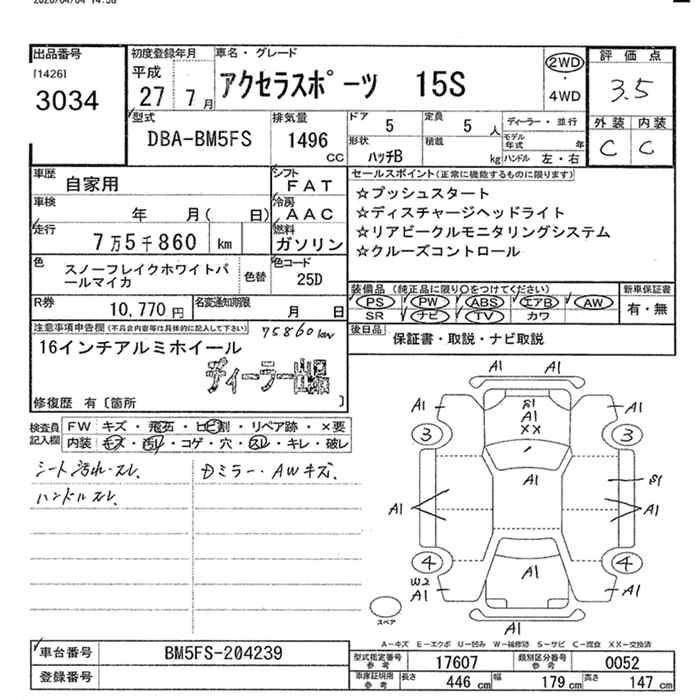 2020/04/04 14:58
出品番号 初度登録年月 車名・グレード 評価点
[1426] 平成 アクセラスポーツ 15S 2WD 3.5
3034 27 7月 4WD
型式 排気量 ドア 定員 ディーラー・並行 外装 内装
DBA-BM5FS 1496 5 5 人 モデル年式 年 C C
CC 形状 ハッチB 積載 kg ハンドル 左・右
車歴 自家用 シフト FAT セールスポイント(正常に機能するものに限ります)
車検 年 月( 日) 冷房 AAC ☆プッシュスタート
☆ディスチャージヘッドライト
走行 7万5千860 km 燃料 ガソリン ☆リアビークルモニタリングシステム
☆クルーズコントロール
色 スノーフレイクホワイトパールマイカ 色替 色コード 25D
装備品(純正品に限り〇をつけてください) 新車保証書
R券 10,770円 名変通知期限 月 日 PS PW ABS エアB AW 有・無
SR ナビ TV カワ
注意事項申告欄(不具合内容等は具体的に記入して下さい) 75860km 後日品 保証書・取説・ナビ取説
16インチアルミホイール
ディーラー出品
修復歴 有〔箇所 〕
検査員記入欄 FW キズ・飛石・ヒビ割・リペア跡・×要
内装 キズ・汚レ・コゲ・穴・スレ・キレ・破レ
シート汚れ・スレ、 Dミラー・AWキズ、
ハンドルスレ、
A1
A1 S1 A1
A1
XX
3 3
A1
S1
A1 A1
4 4
W2 A1
A1 A1
スペア
A1
A-キズ E-エクボ U-凹み W-補修跡 S-サビ C-腐食 XX-交換済
車台番号 BM5FS-204239 型式指定番号 参考 17607 類別区分番号 参考 0052
登録番号 車庫証明用 参考 長さ 446 cm 幅 179 cm 高さ 147 cm